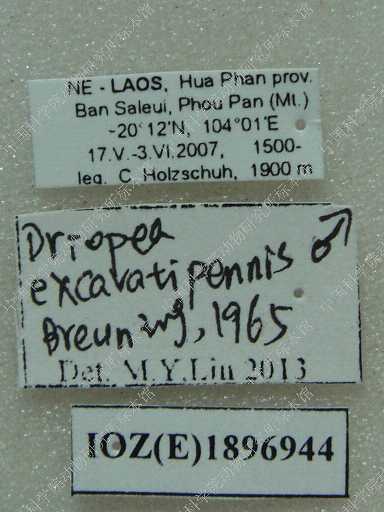 NE - LAOS, Hua Phan prov.
Ban Saleui, Phou Pan (Mt.)
~20°12'N, 104°01'E
17.V.-3.VI.2007, 1500-
leg. C. Holzschuh, 1900 m
Driopea
excavatipennis ♂
Breuning, 1965
Det. M.Y.Lin 2013
IOZ(E)1896944